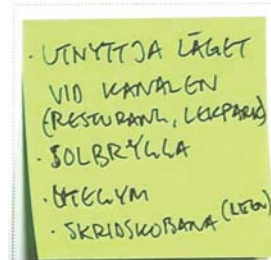 · UTNYTTJA LÄGET
VID KANALEN
(RESTURANG, LEKPARK)
· SOLBRYGGA
· UTEGYM
· SKRIDSKOBANA (LEEN)